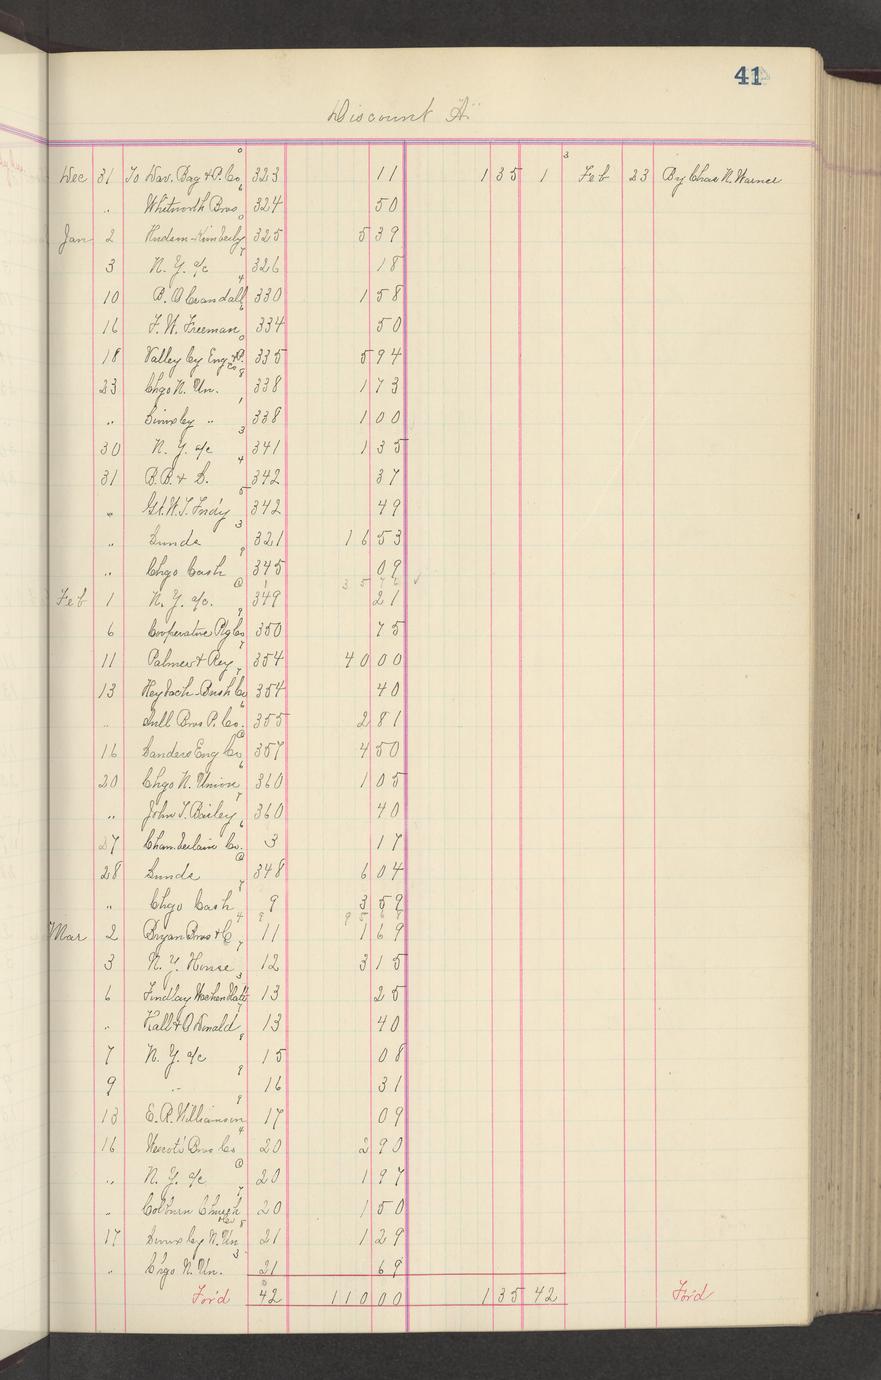 41
Discount A
Dec 31 To Dav. Bag & P. Co 323 11 135 1 Feb 23 By Chas N. Warner
" Whitworth Bros 324 50
Jan 2 Hudson-Kimberly 325 5 39
3 N. Y. a/c 326 18
10 B. O Crandall 330 1 58
16 F. W. Freeman 334 50
18 Valley Cy Eng & P. Co 335 5 94
23 Chgo N. Un. 338 1 73
" " 338 1 00
30 N. Y. a/c 341 1 35
31 B. B. & S. 342 37
" Gt. W. T. Fndy 342 49
" Sunds 321 16 53
" Chgo Cash 345 09
Feb 1 N. Y. a/c. 349 21
6 Cooperative Ptg Co 350 75
11 Palmer & Rey 354 40 00
13 Heybach-Bush Co 354 40
" Bros P. Co. 355 2 81
16 Sanders Eng Co 357 4 50
20 Chgo N. Union 360 1 05
" John T. Bailey 360 40
27 Chamberlain Co. 3 17
28 Sunds 348 6 04
" Chgo Cash 9 3 59
Mar 2 Bryan Bros & C 11 1 69
3 N. Y. House 12 3 15
6 Findlay 13 25
" Hall & O'Donald 13 40
7 N. Y. a/c 15 08
9 " 16 31
13 E. R. Williamson 17 09
16 Bros Co 20 2 90
" N. Y. a/c 20 1 97
" Colburn Church 20 1 50
17 N. Un 21 1 29
" C'go N. Un. 21 69
For'd 42 110 00 135 42 For'd